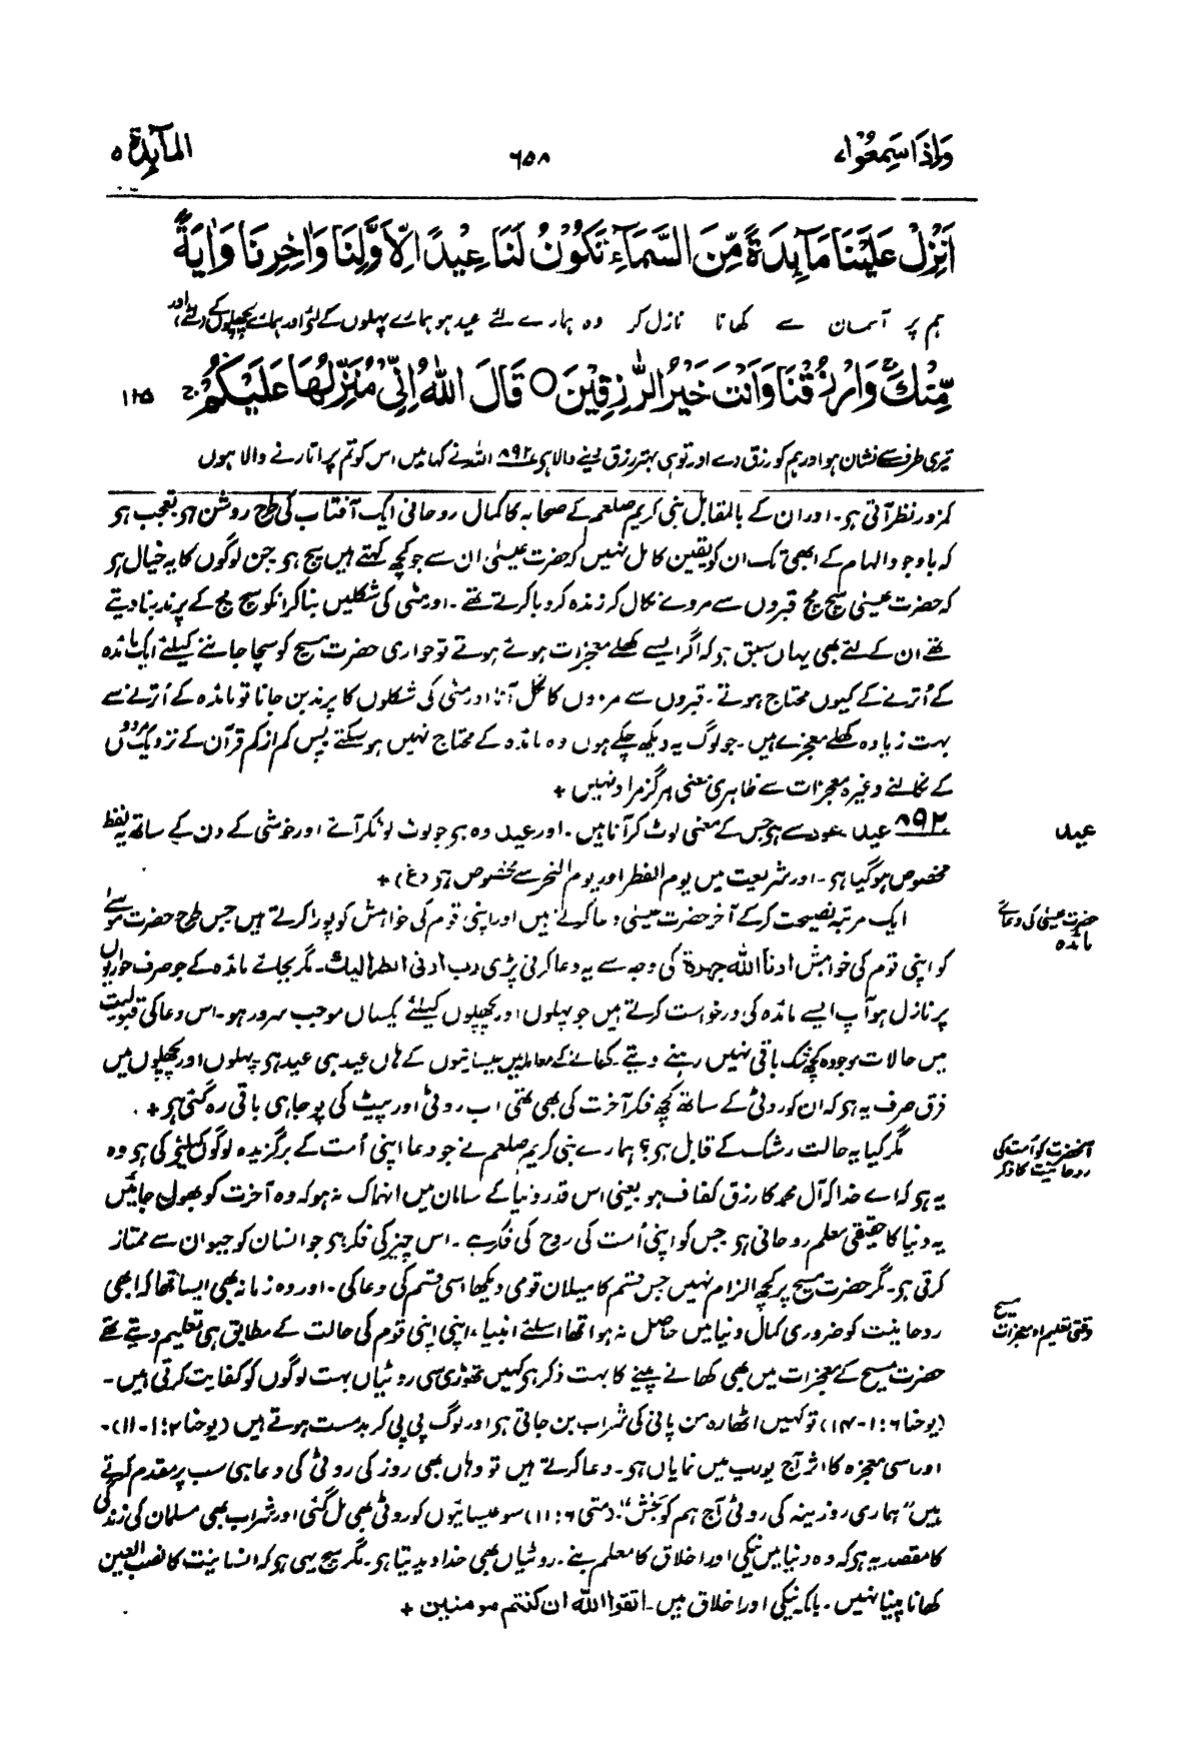 وَاِذَا سَمِعُوْا
۶۵۸
المآئِدَة ۵
اَنْزِلْ عَلَيْنَا مَآئِدَةً مِّنَ السَّمَآءِ تَكُوْنُ لَنَا عِيْدًا لِّاَوَّلِنَا وَاٰخِرِنَا وَاٰيَةً
ہم پر آسمان سے کھانا نازل کر وہ ہمارے لئے عید ہو ہمارے پہلوں کے لئے اور ہمارے پچھلوں کے لئے اور
مِّنْكَ وَارْزُقْنَا وَاَنْتَ خَيْرُ الرّٰزِقِيْنَ ○ قَالَ اللّٰهُ اِنِّيْ مُنَزِّلُهَا عَلَيْكُمْ ۚ ۱۱۵
تیری طرف سے نشان ہو اور ہم کو رزق دے اور تو ہی بہتر رزق دینے والا ہو ۸۹۲ اللہ نے کہا میں اس کو تم پر اتارنے والا ہوں
کمزور نظر آتی ہو۔ اور ان کے بالمقابل نبی کریم صلعم کے صحابہ کا کمال روحانی ایک آفتاب کی طرح روشن ہو تعجب ہو
کہ باوجود الہام کے ابھی تک ان کو یقین کامل نہیں کہ حضرت عیسیٰ ان سے جو کچھ کہتے ہیں سچ ہو جن لوگوں کا یہ خیال ہو
کہ حضرت عیسیٰ سچ مچ قبروں سے مردے نکال کر زندہ کر دیا کرتے تھے۔ اور مٹی کی شکلیں بنا کر انکو سچ مچ کے پرند بنا دیتے
تھے ان کے لئے بھی یہاں سبق ہو کہ اگر ایسے کھلے معجزات ہوئے ہوتے تو حواری حضرت مسیح کو سچا جاننے کیلئے ایک مائدہ
کے اُترنے کے کیوں محتاج ہوتے۔ قبروں سے مردوں کا نکل آنا اور مٹی کی شکلوں کا پرند بن جانا تو مائدہ کے اُترنے سے
بہت زیادہ کھلے معجزے ہیں۔ جو لوگ یہ دیکھ چکے ہوں وہ مائدہ کے محتاج نہیں ہو سکتے پس کم از کم قرآن کے نزدیک مردوں
کے نکالنے وغیرہ معجزات سے ظاہری معنی ہرگز مراد نہیں +
عید
۸۹۲ عید عود سے ہو جس کے معنی لوٹ کر آنا ہیں۔ اور عید وہ ہو جو لوٹ لوٹکر آئے اور خوشی کے دن کے ساتھ یہ لفظ
مخصوص ہو گیا ہو۔ اور شریعت میں یوم الفطر اور یوم النحر سے مخصوص ہو (غ) +
حضرت عیسیٰ کی دعائے
مائدہ
ایک مرتبہ نصیحت کر کے آخر حضرت عیسیٰ دعا کرتے ہیں اور اپنی قوم کی خواہش کو پورا کرتے ہیں جس طرح حضرت موسےٰ
کو اپنی قوم کی خواہش ارنا اللہ جہرة کی وجہ سے یہ دعا کرنی پڑی رب ارنی انظر الیك۔ مگر بجائے مائدہ کے جو صرف حواریوں
پر نازل ہو آپ ایسے مائدہ کی درخواست کرتے ہیں جو پہلوں اور پچھلوں کیلئے یکساں موجب سرور ہو۔ اس دعا کی قبولیت
میں حالات موجودہ کچھ شک باقی نہیں رہنے دیتے۔ کھانے کے معاملہ میں عیسائیوں کے ہاں عید ہی عید ہو پہلوں اور پچھلوں میں
فرق صرف یہ ہو کہ ان کو روٹی کے ساتھ کچھ فکر آخرت کی بھی تھی اب روٹی اور پیٹ کی پوجا ہی باقی رہ گئی ہو +
آنحضرت کو اُمت کی
روحانیت کا فکر
مگر کیا یہ حالت رشک کے قابل ہو؟ ہمارے نبی کریم صلعم نے جو دعا اپنی اُمت کے برگزیدہ لوگوں کیلئے کی ہو وہ
یہ ہو کہ اے خدا کہ آل محمد کا رزق کفاف ہو یعنی اس قدر دنیا کے سامان میں انہماک نہ ہو کہ وہ آخرت کو بھول جائیں
یہ دنیا کا حقیقی معلم روحانی ہو جس کو اپنی اُمت کی روح کی فکر ہے۔ اس چیز کی فکر ہو جو انسان کو حیوان سے ممتاز
کرتی ہو۔ مگر حضرت مسیح پر کچھ الزام نہیں جس قسم کا میلان قومی دیکھا اسی قسم کی دعا کی۔ اور وہ زمانہ بھی ایسا تھا کہ ابھی
مسیح
وقتی تعلیم اور معجزات
روحانیت کو ضروری کمال دنیا میں حاصل نہ ہوا تھا اسلئے انبیاء اپنی اپنی قوم کی حالت کے مطابق ہی تعلیم دیتے تھے
حضرت مسیح کے معجزات میں بھی کھانے پینے کا بہت ذکر ہو کہیں تھوڑی سی روٹیاں بہت لوگوں کو کفایت کرتی ہیں۔
(یوحنا ۶: ۱-۱۴) تو کہیں اٹھارہ من پانی کی شراب بن جاتی ہو اور لوگ پی پی کر بدمست ہوتے ہیں (یوحنا ۲: ۱-۱۱)۔
اور اسی معجزہ کا اثر آج یورپ میں نمایاں ہو۔ دعا کرتے ہیں تو وہاں بھی روز کی روٹی کی دعا ہی سب پر مقدم کرتے
ہیں "ہماری روزینہ کی روٹی آج ہم کو بخش"۔ (متی ۶: ۱۱) سو عیسائیوں کو روٹی بھی مل گئی اور شراب بھی مسلمان کی زندگی
کا مقصد یہ ہو کہ وہ دنیا میں نیکی اور اخلاق کا معلم بنے۔ روٹیاں بھی خدا دیدیتا ہو۔ مگر سچ یہی ہو کہ انسانیت کا نصب العین
کھانا پینا نہیں۔ بلکہ نیکی اور اخلاق ہیں۔ اتقوا اللہ ان کنتم مومنین +